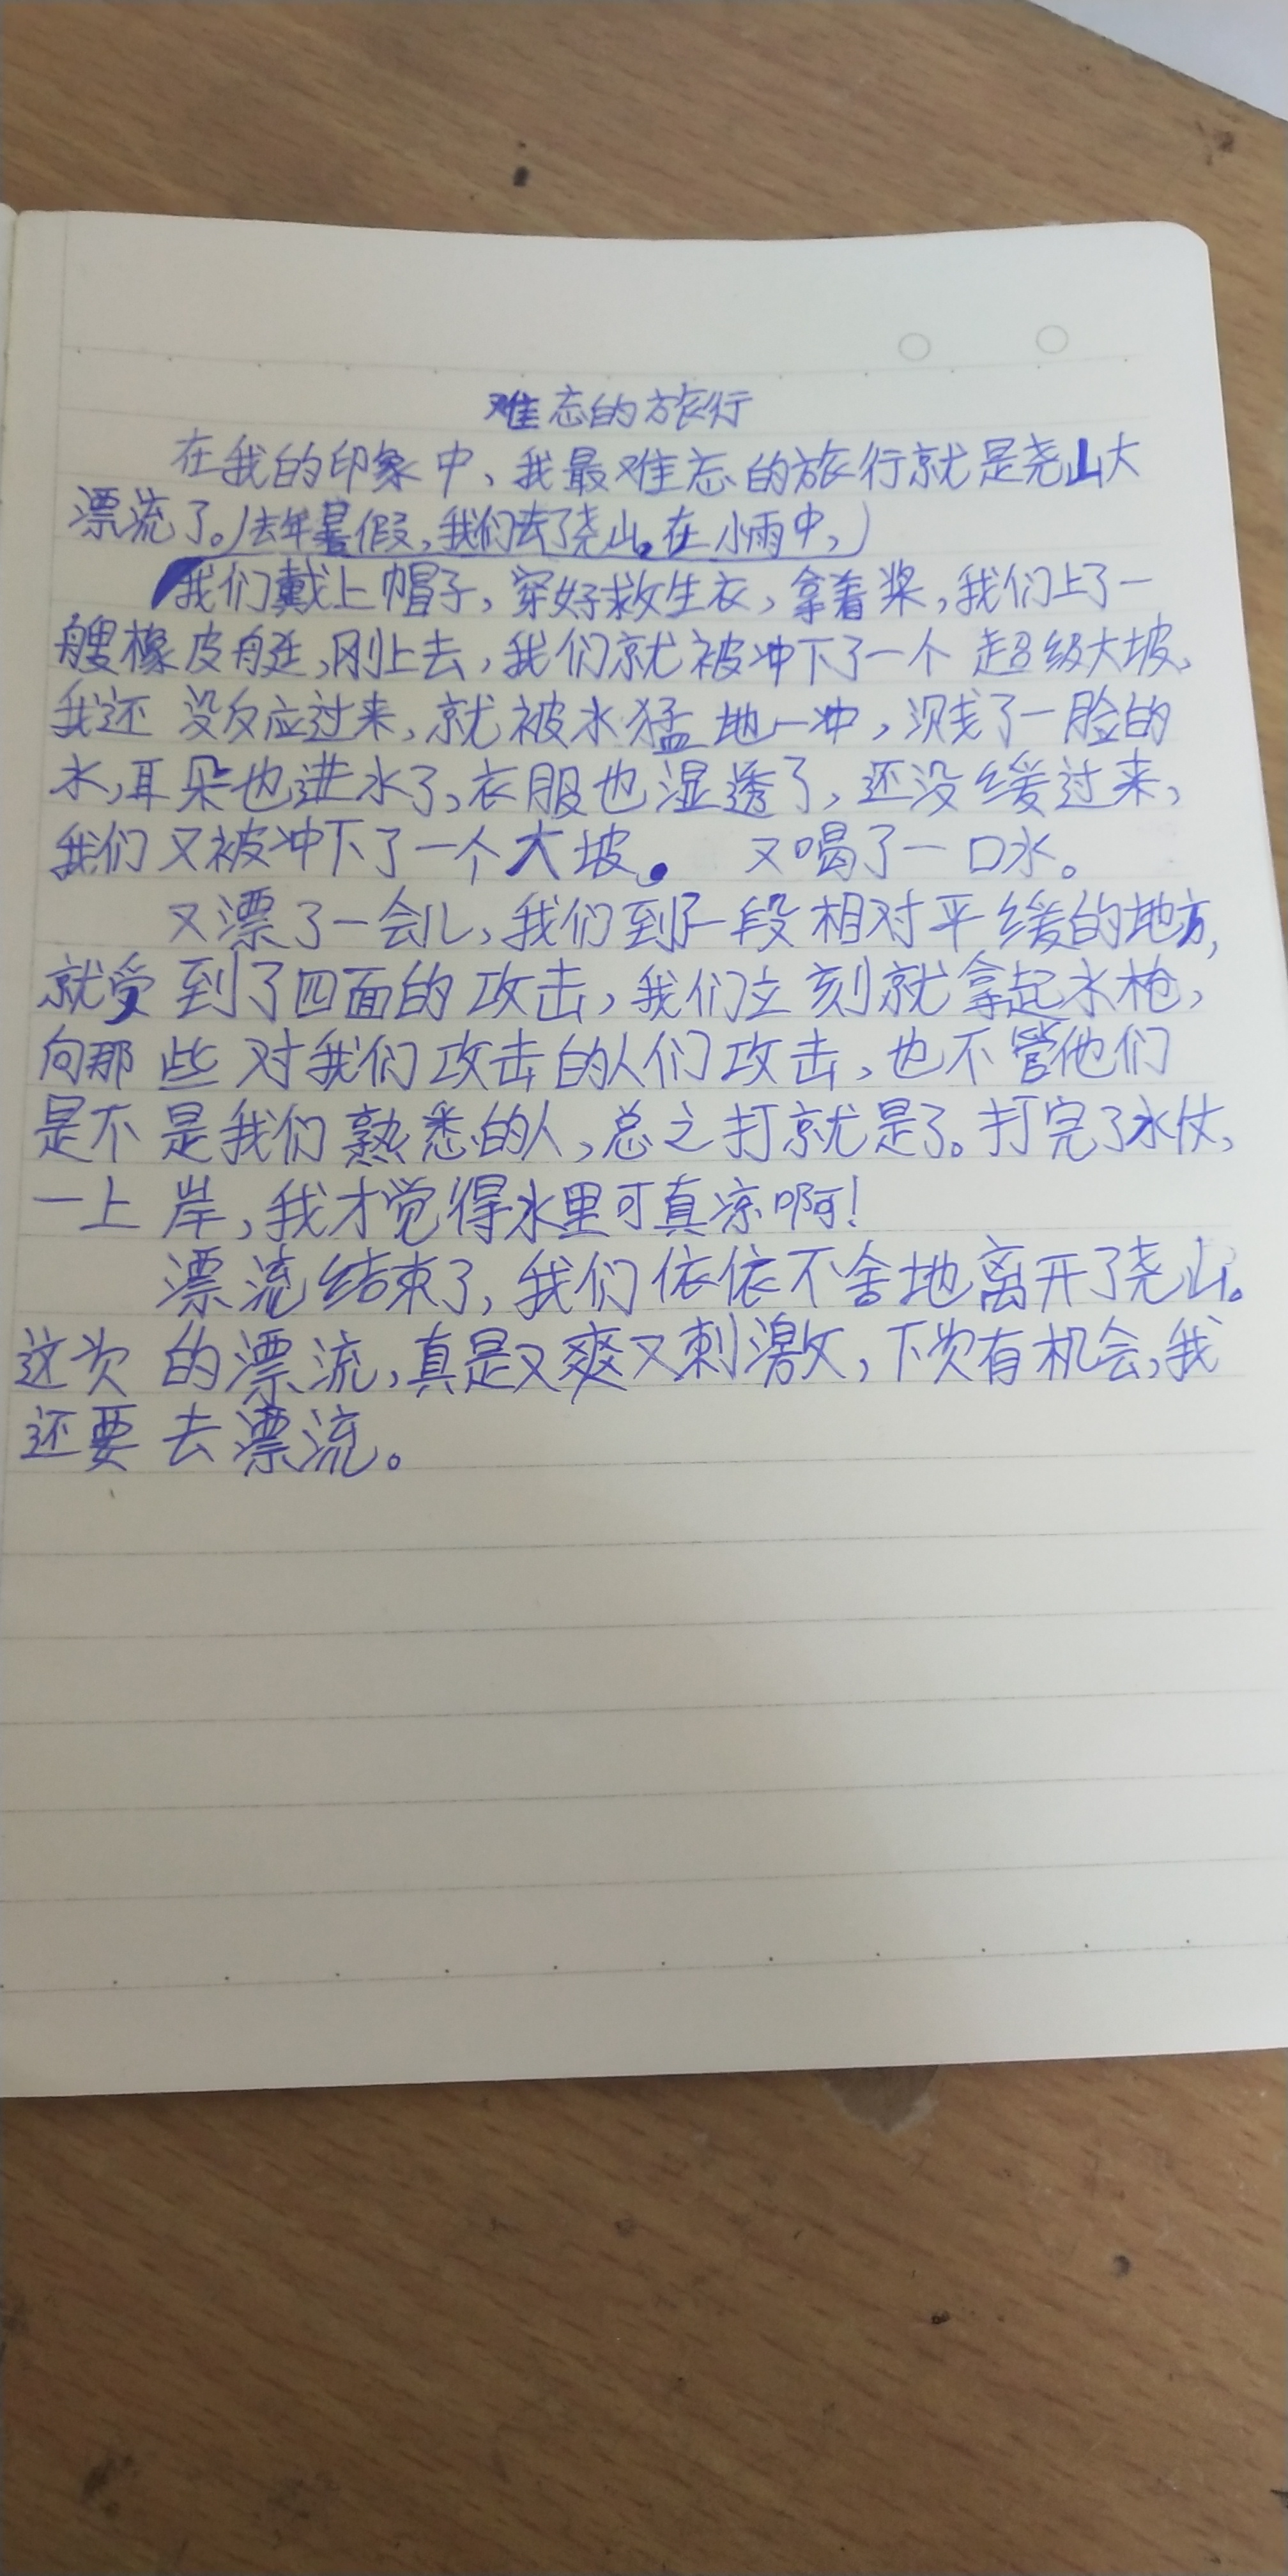 难忘的旅行
在我的印象中、我最难忘的旅行就是尧山大
漂流了。(去年暑假,我们去了尧山。在小雨中,)
我们戴上帽子,穿好救生衣,拿着桨,我们上了一
艘橡皮艇,刚上去,我们就被冲下了一个超级大坡,
我还没反应过来,就被水猛地一冲,溅了一脸的
水,耳朵也进水了,衣服也湿透了,还没缓过来,
我们又被冲下了一个大坡。又喝了一口水。
又漂了一会儿,我们到了一段相对平缓的地方,
就受到了四面的攻击,我们立刻就拿起水枪,
向那些对我们攻击的人们攻击,也不管他们
是不是我们熟悉的人,总之打就是了。打完了水仗,
一上岸,我才觉得水里可真凉啊!
漂流结束了,我们依依不舍地离开了尧山。
这次的漂流,真是又爽又刺激,下次有机会,我
还要去漂流。